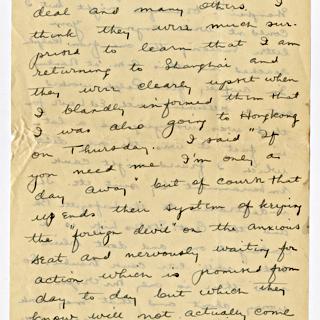 deal and many others. I
think they were much sur-
prised to learn that I am
returning to Shanghai and
they were clearly upset when
I blandly informed them that
I was also going to Hongkong
on Thursday. I said "If
you need me I'm only a
day away" but of course that
up ends their system of keeping
the "foreign devil" on the anxious
seat and nervously waiting for
action which is promised from
day to day but which they
know will not actually come